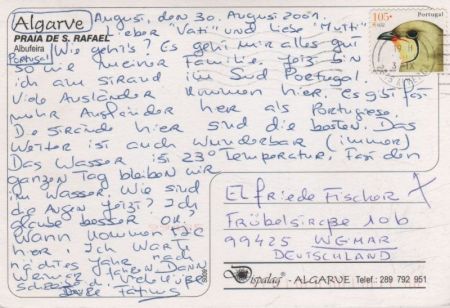 Algarve
PRAIA DE S. RAFAEL
Albufeira
Portugal
August, den 30. August 2001.
lieber "Vati" und liebe "Mutti"
Wie geht's? Es geht mir alles gut
so wie meiner Familie. Jetzt bin
ich am Strand im Süd Portugal.
Viele Ausländer kommen hier. Es gibt fast
mehr Ausländer her als Portugiese.
Die Strände hier sind die besten. Das
Wetter ist auch wunderbar (immer)
Das Wasser ist 23° Temperatur. Fast den
ganzen Tag bleiben wir
im Wasser. Wie sind
die Augen jetzt? Ich
glaube besser OK?
Wann kommen Sie
her? Ich warte
nächstes Jahr nach
fahren. Dann
Viele Grüße
105$
Portugal
19
Elfriede Fischer
Fröbelstraße 10b
99425 WEIMAR
DEUTSCHLAND
Vispalag - ALGARVE Telef.: 289 792 951